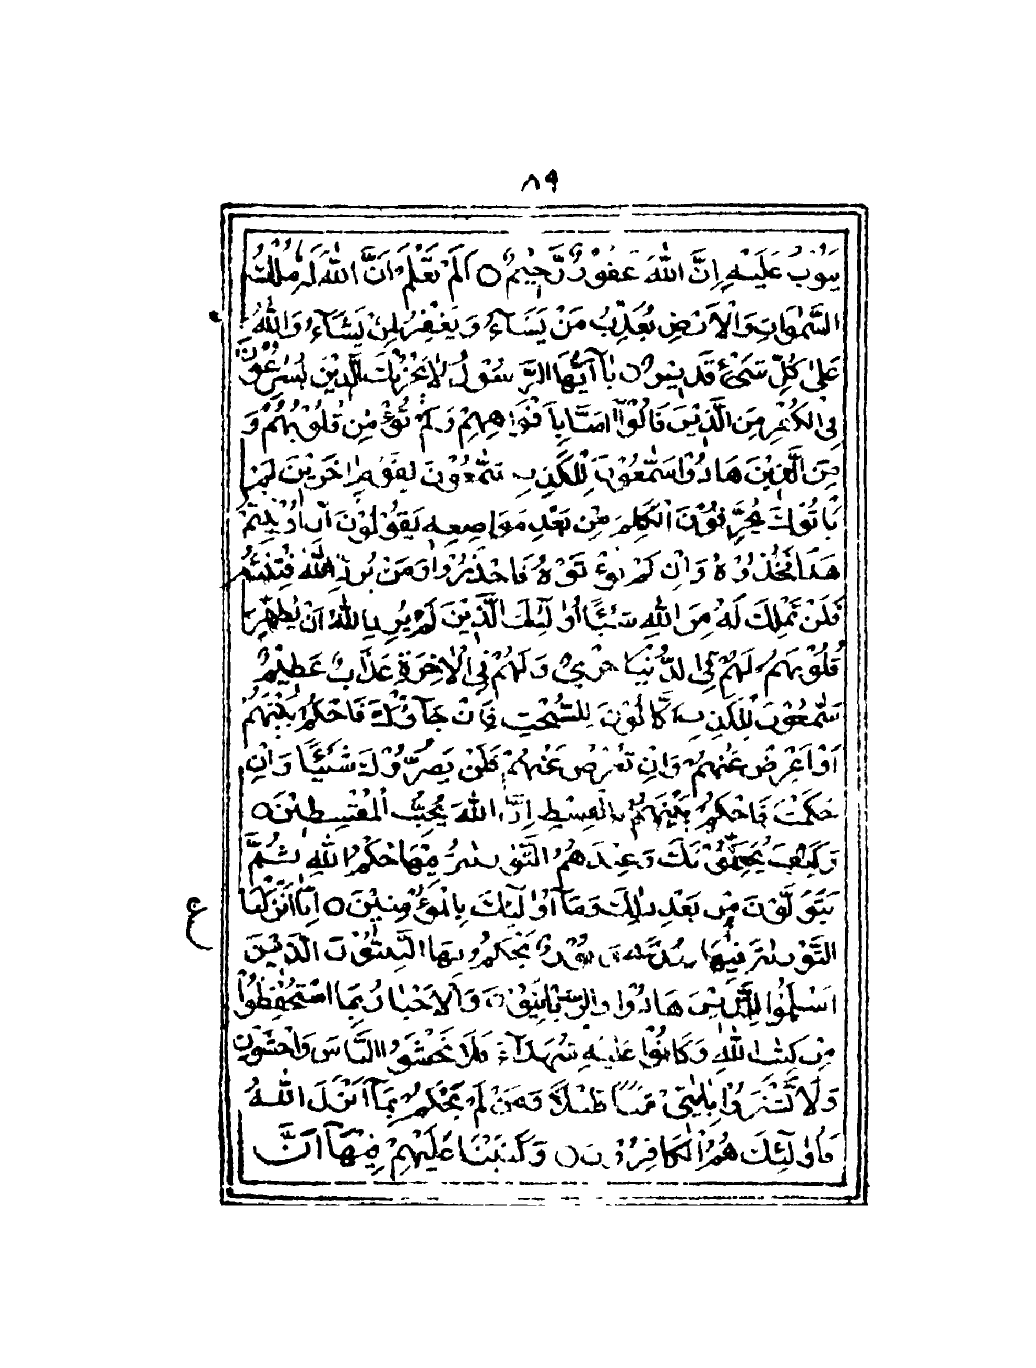 ٨٩
يَتُوْبُ عَلَيْهِ اِنَّ اللّٰهَ غَفُوْرٌ رَّحِيْمٌ ○ اَلَمْ تَعْلَمْ اَنَّ اللّٰهَ لَهٗ مُلْكُ
السَّمٰوَاتِ وَالْاَرْضِ يُعَذِّبُ مَنْ يَّشَآءُ وَيَغْفِرُ لِمَنْ يَّشَآءُ وَاللّٰهُ
عَلٰى كُلِّ شَيْءٍ قَدِيْرٌ ○ يٰآ اَيُّهَا الرَّسُوْلُ لَا يَحْزُنْكَ الَّذِيْنَ يُسَارِعُوْنَ
فِى الْكُفْرِ مِنَ الَّذِيْنَ قَالُوْآ اٰمَنَّا بِاَفْوَاهِهِمْ وَلَمْ تُؤْمِنْ قُلُوْبُهُمْ وَ
مِنَ الَّذِيْنَ هَادُوْا سَمّٰعُوْنَ لِلْكَذِبِ سَمّٰعُوْنَ لِقَوْمٍ اٰخَرِيْنَ لَمْ
يَاْتُوْكَ يُحَرِّفُوْنَ الْكَلِمَ مِنْ بَعْدِ مَوَاضِعِهٖ يَقُوْلُوْنَ اِنْ اُوْتِيْتُمْ
هٰذَا فَخُذُوْهُ وَاِنْ لَّمْ تُؤْتَوْهُ فَاحْذَرُوْا وَمَنْ يُّرِدِ اللّٰهُ فِتْنَتَهٗ
فَلَنْ تَمْلِكَ لَهٗ مِنَ اللّٰهِ شَيْئًا اُولٰٓئِكَ الَّذِيْنَ لَمْ يُرِدِ اللّٰهُ اَنْ يُّطَهِّرَ
قُلُوْبَهُمْ لَهُمْ فِى الدُّنْيَا خِزْيٌ وَلَهُمْ فِى الْاٰخِرَةِ عَذَابٌ عَظِيْمٌ
سَمّٰعُوْنَ لِلْكَذِبِ اَكّٰلُوْنَ لِلسُّحْتِ فَاِنْ جَآءُوْكَ فَاحْكُمْ بَيْنَهُمْ
اَوْ اَعْرِضْ عَنْهُمْ وَاِنْ تُعْرِضْ عَنْهُمْ فَلَنْ يَّضُرُّوْكَ شَيْئًا وَاِنْ
حَكَمْتَ فَاحْكُمْ بَيْنَهُمْ بِالْقِسْطِ اِنَّ اللّٰهَ يُحِبُّ الْمُقْسِطِيْنَ ○
وَكَيْفَ يُحَكِّمُوْنَكَ وَعِنْدَهُمُ التَّوْرٰىةُ فِيْهَا حُكْمُ اللّٰهِ ثُمَّ
يَتَوَلَّوْنَ مِنْ بَعْدِ ذٰلِكَ وَمَآ اُولٰٓئِكَ بِالْمُؤْمِنِيْنَ ○ اِنَّا اَنْزَلْنَا
ع
التَّوْرٰىةَ فِيْهَا هُدًى وَّنُوْرٌ يَحْكُمُ بِهَا النَّبِيُّوْنَ الَّذِيْنَ
اَسْلَمُوْا لِلَّذِيْنَ هَادُوْا وَالرَّبّٰنِيُّوْنَ وَالْاَحْبَارُ بِمَا اسْتُحْفِظُوْا
مِنْ كِتٰبِ اللّٰهِ وَكَانُوْا عَلَيْهِ شُهَدَآءَ فَلَا تَخْشَوُا النَّاسَ وَاخْشَوْنِ
وَلَا تَشْتَرُوْا بِاٰيٰتِىْ ثَمَنًا قَلِيْلًا وَمَنْ لَّمْ يَحْكُمْ بِمَآ اَنْزَلَ اللّٰهُ
فَاُولٰٓئِكَ هُمُ الْكَافِرُوْنَ ○ وَكَتَبْنَا عَلَيْهِمْ فِيْهَآ اَنَّ